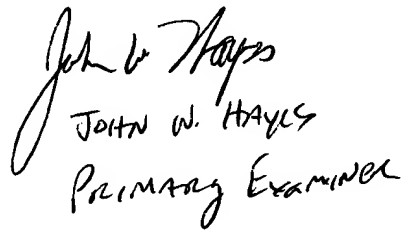 John W Hayes
JOHN W. HAYES
PRIMARY EXAMINER